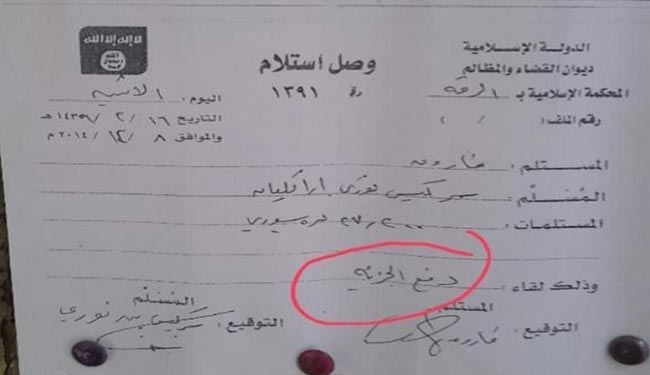 الدولة الإسلامية
ديوان القضاء والمظالم
المحكمة الإسلامية بـ الرقة
رقم الملف: / /
وصل إستلام
رقم ١٣٩١
لا إله إلا الله
الله
رسول
محمد
اليوم: الاثنين
التاريخ ١٦ / ٢ / ١٤٣٦ هـ
والموافق ٨ / ١٢ / ٢٠١٤ م
المستلم: فاروق
المُسَلّم: سركيس نوري اراكليان
المستلمات: ٢٧,٢٠٠ ليرة سوري
وذلك لقاء: دفع الجزية
المستلم
التوقيع: فاروق
المُسَلّم
التوقيع: سركيس نوري